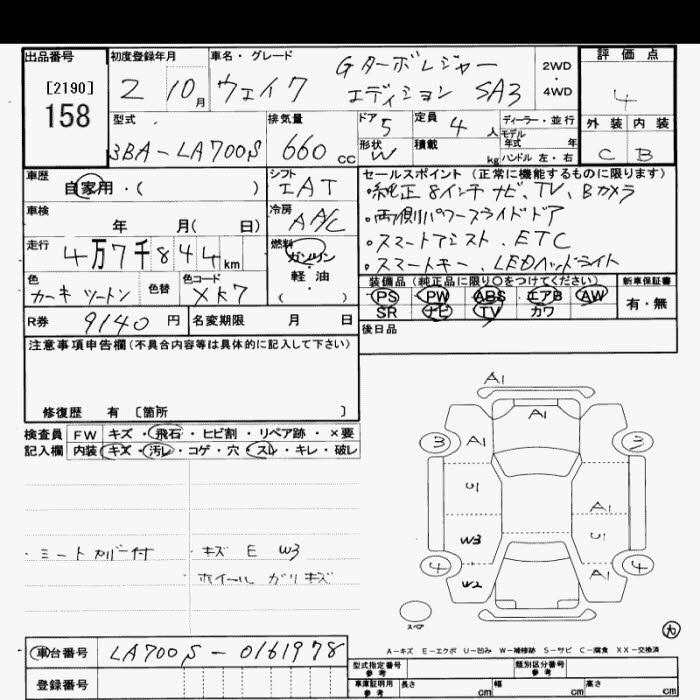 出品番号 初度登録年月 車名・グレード Gターボレジャー 2WD 評価点
[2190] 2 10月 ウェイク エディション SA3 ・ 4WD 4
158 型式 排気量 ドア 5 定員 4人 ディーラー・並行 外装 内装
3BA-LA700S 660cc 形状 W 積載 kg モデル年式 年 C B
ハンドル 左・右
車歴 自家用・( ) シフト IAT セールスポイント (正常に機能するものに限ります)
・純正8インチナビ、TV、Bカメラ
車検 年 月( 日) 冷房 AA/C ・両側パワースライドドア
走行 4万7千844km 燃料 ガソリン・軽油・( ) ・スマートアシスト、ETC
色 カーキツートン 色替 色コード XK7 ・スマートキー、LEDヘッドライト
装備品 (純正品に限り○をつけてください) 新車保証書
PS PW ABS エアB AW 有・無
SR ナビ TV カワ
R券 9140円 名変期限 月 日 後日品
注意事項申告欄(不具合内容等は具体的に記入して下さい)
修復歴 有 〔箇所 〕
検査員 FW キズ・飛石・ヒビ割・リペア跡・×要
記入欄 内装 キズ・汚レ・コゲ・穴・スレ・キレ・破レ
・シートカバー付 ・キズ E W3
ホイールガリキズ
A1
A1
3 A1 3
U1
A1
W3 U1
4 W2 A1 4
スペア
A-キズ E-エクボ U-凹み W-補修跡 S-サビ C-腐食 XX-交換済
車台番号 LA700S-0161978 型式指定番号 参考 類別区分番号 参考
登録番号 車庫証明用 参考 長さ cm 幅 cm 高さ cm